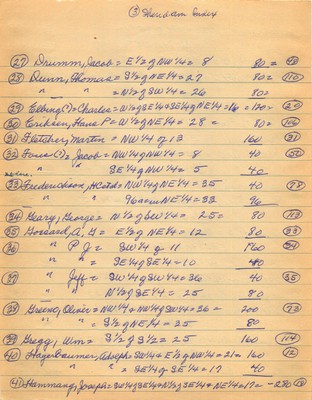 ③ Sheridan Index
㉗ Drumm, Jacob = E½ of NW¼ = 8 80 =
㉘ Dunn, Thomas = S½ of NE¼ = 27 80 = 110
" " = N½ of SW¼ = 26 80 =
㉙ Elbing(?) = Charles = W½ of SE¼ + SE¼ of NE¼ = 16 = 120 = 20
㉚ Erickson, Hans P = W½ of NW¼ = 28 = 80 = 106
㉛ Fletcher, Martin = NW¼ of 13 160 31
㉜ Jacob = NW¼ of NW¼ = 8 40 50
" " SE¼ of NW¼ = 5 40
㉝ Frederickson, = NW¼ of NE¼ = 35 40 78
" 96 NE¼ = 33 96
㉞ Geary, George = N½ of SW¼ = 25 = 80 113
㉟ Goddard, A, G = E½ of NE¼ = 12 80 33
㊱ " P J = SW¼ of 11 160 34
" " = SE¼ of SE¼ = 10 40
㊲ " Jeff = SW¼ of SW¼ = 36 40 55
" " N½ of SE¼ = 25 80
㊳ Greeno, Oliver = NW¼ + NW¼ of SW¼ = 26 = 200 73
" " = S½ of NE¼ = 25 80
㊴ Gregg, Wm = S½ of S½ = 25 160 114
㊵ Hagebaumer, Adolph = SW¼ + E½ of NW¼ = 21 = 160 12
" " = SE¼ of SE¼ = 17 40
㊶ Hammang, Joseph = SW¼ of SE¼ + N½ of SE¼ + NE¼ = 17 = 280